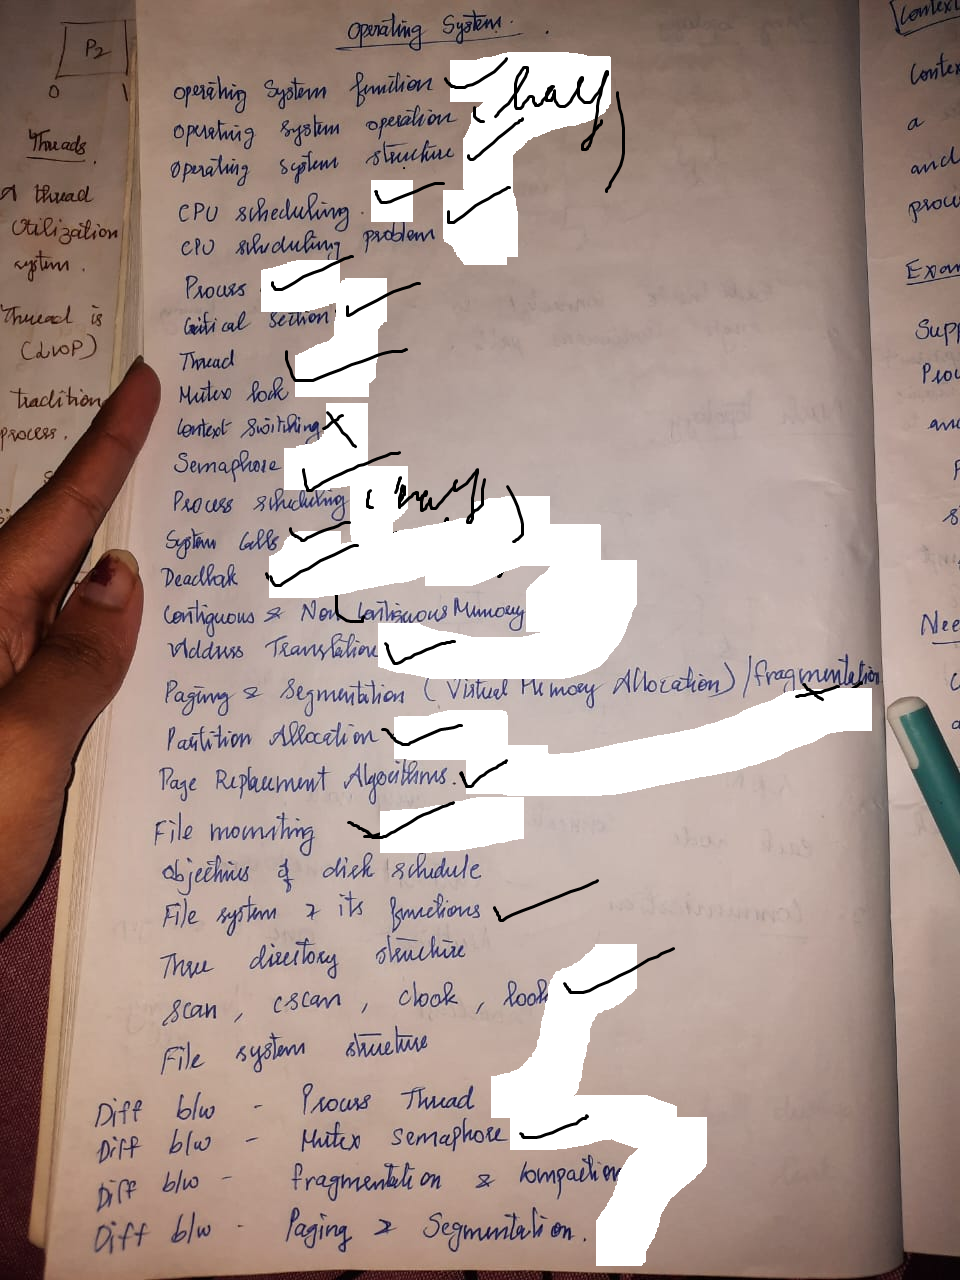 Operating System.
P2
0 1
Threads.
A thread
Utilization
system.
Thread is
(LWP)
tradition
process.
Operating System function
(half)
Operating system operation
Operating system structure
CPU scheduling.
CPU scheduling problem
Process
Critical section
Thread
Mutex lock
Context switching
Semaphore
Process scheduling (half)
System Calls
Deadlock
Contiguous & Non Contiguous Memory
Address Translation
Paging & Segmentation (Virtual Memory Allocation) / fragmentation
Partition Allocation
Page Replacement Algorithms.
File mounting
Objectives of disk schedule
File system & its functions
Three directory structure
Scan, cscan, clook, look
File system structure
Diff b/w - Process Thread
Diff b/w - Mutex semaphore
Diff b/w - fragmentation & compaction
Diff b/w - Paging & Segmentation.
Context
Contex
a
and
proce
Exam
Supp
Proc
and
Nee